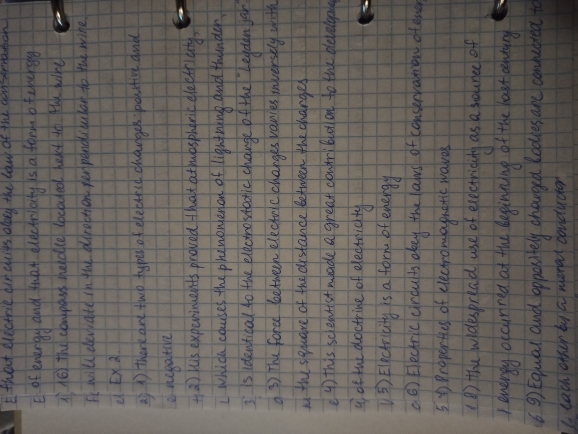 that electric circuits obey the law of the conservation
of energy and that electricity is a form of energy
16) The compass needle located next to the wire
will deviate in the direction perpendicular to the wire
Ex 2
1) There are two types of electric charges positive and
negative
2) His experiments proved that atmospheric electricity,
which causes the phenomenon of lightning and thunder,
is identical to the electrostatic charge of the "Leyden jar"
3) The force between electric charges varies inversely with
the square of the distance between the charges
4) This scientist made a great contribution to the
of the doctrine of electricity
5) Electricity is a form of energy
6) Electric circuits obey the laws of conservation of
7) Properties of electromagnetic waves
8) The widespread use of electricity as a source of
energy occurred at the beginning of the last century
9) Equal and oppositely charged bodies are connected to
each other by a metal conductor